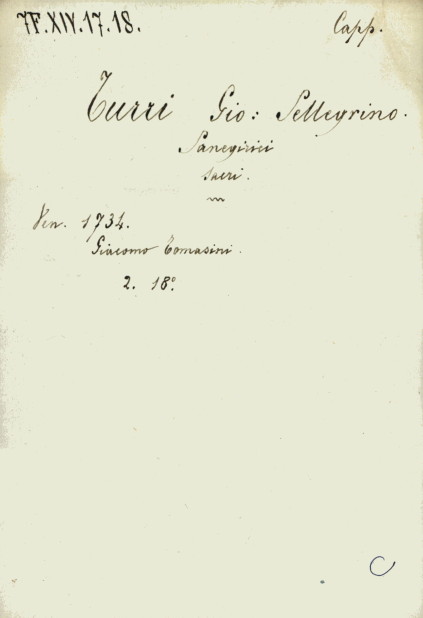 7F.XIV.17.18. Capp.
Turri Gio: Pellegrino.
Panegirici
sacri.
Ven. 1734.
Giacomo Tomasini.
2. 18º.
C